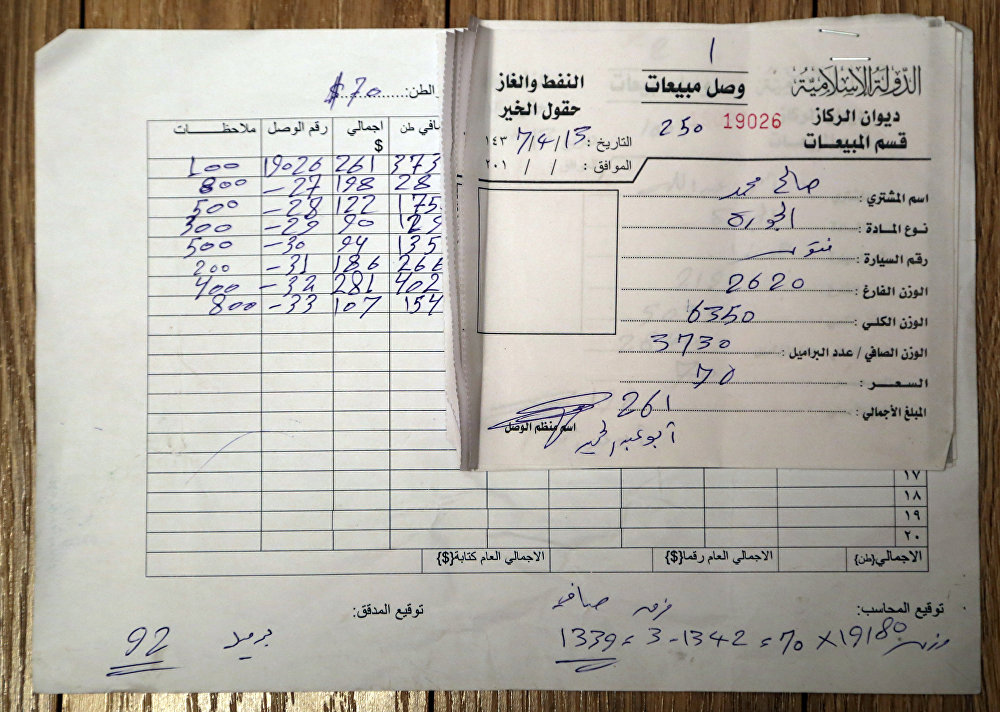 ١
الدولة الإسلامية
ديوان الركاز
قسم المبيعات
وصل مبيعات
250 19026
النفط والغاز
حقول الخير
التاريخ : 13/4/7 ١٤٣
الموافق : / / ٢٠١
اسم المشتري : صالح محمد
نوع المادة :
رقم السيارة :
الوزن الفارغ : 2620
الوزن الكلي : 6350
الوزن الصافي / عدد البراميل : 3730
السعر : 70
المبلغ الأجمالي : 261
اسم منظم الوصل
الطن: $70
طن اجمالي $ رقم الوصل ملاحظات
373 261 19026 100
28 198 27 – 800
175 122 28 – 500
129 90 29 – 300
135 94 30 – 500
266 186 31 – 200
402 281 32 – 400
154 107 33 – 800
١٧
١٨
١٩
٢٠
الاجمالي{طن} الاجمالي العام رقما{$} الاجمالي العام كتابة{$}
توقيع المحاسب: توقيع المدقق:
19180 × 70 = 1342 - 3 = 1339
92